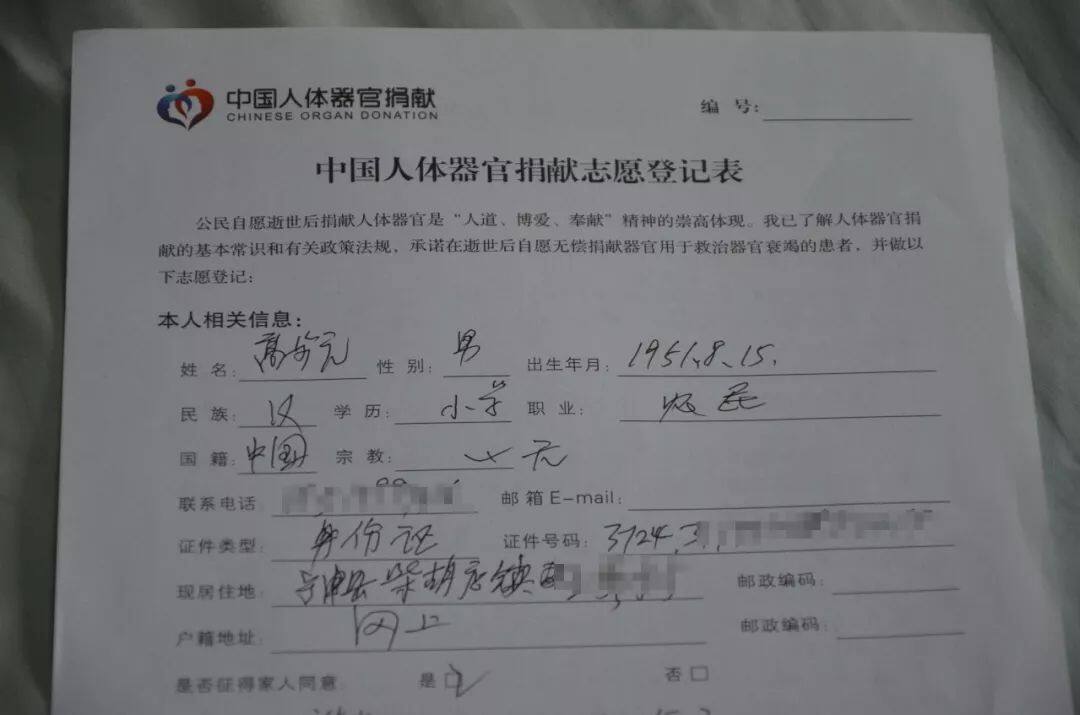 中国人体器官捐献
CHINESE ORGAN DONATION
编 号:
中国人体器官捐献志愿登记表
公民自愿逝世后捐献人体器官是“人道、博爱、奉献”精神的崇高体现。我已了解人体器官捐
献的基本常识和有关政策法规,承诺在逝世后自愿无偿捐献器官用于救治器官衰竭的患者,并做以
下志愿登记:
本人相关信息:
姓 名: 高 元 性 别: 男 出生年月: 1951.8.15.
民 族: 汉 学 历: 小学 职 业: 农民
国 籍: 中国 宗 教: 无
联系电话: 邮 箱 E-mail:
证件类型: 身份证 证件号码: 3724
现居住地: 宁津县柴胡店镇 邮政编码:
户籍地址: 同上 邮政编码:
是否征得家人同意 是 ☑ 否 □